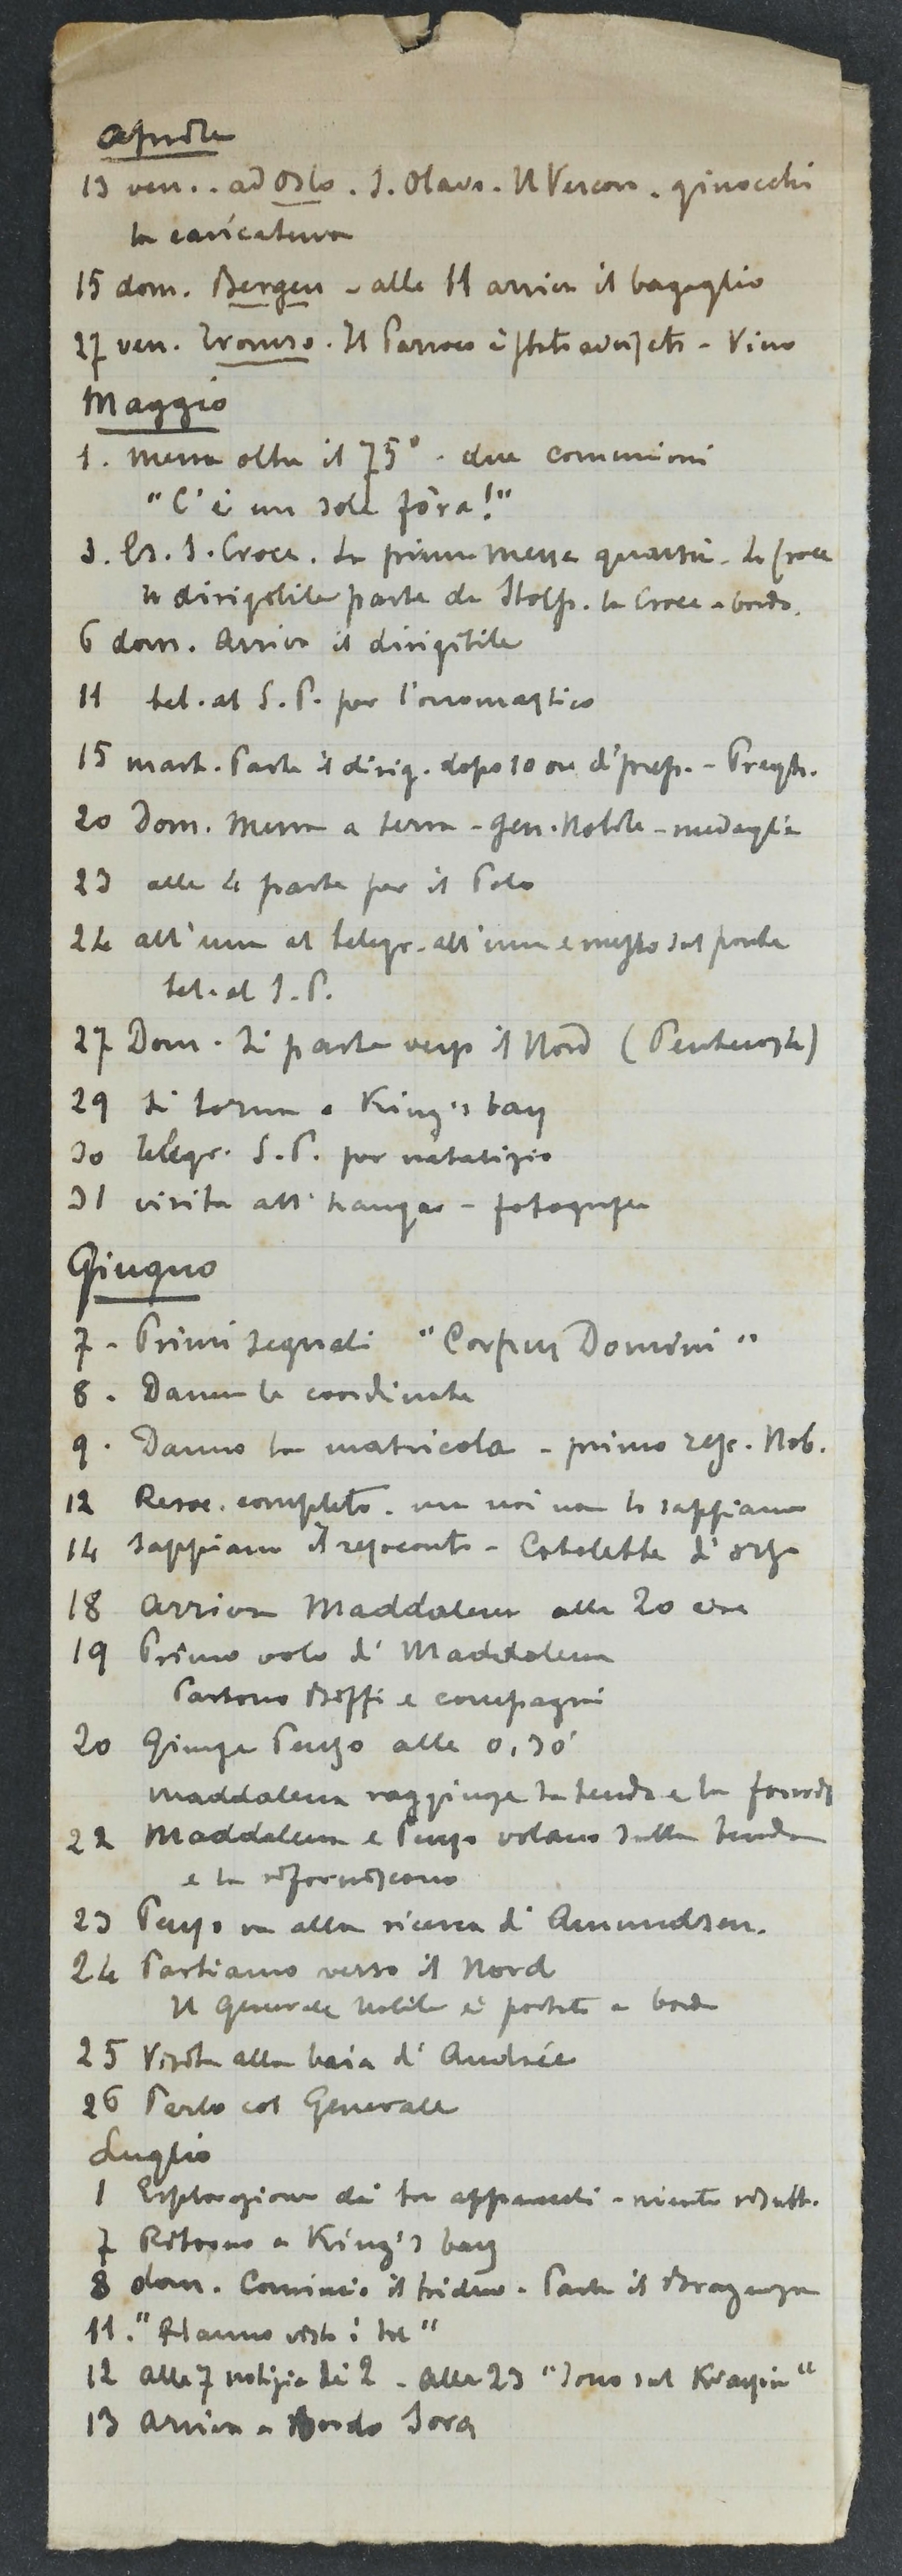 Aprile
13 ven. . ad Oslo . S. Olavo . Il Vescovo . ginocchi
la caricatura
15 dom. Bergen - alle 11 arriva il bagaglio
27 ven. Tromso . Il Parroco è stato - Vino
Maggio
1 . Messa oltre il 75° . due comunioni
"C'è un sole fòra!"
3 . Es. S. Croce . La prima messa quassù - La Croce
Il dirigibile parte da Stolp. la Croce a bordo.
6 dom. Arriva il dirigibile
11 tel. al S. P. per l'onomastico
15 mart. Parte il dirig. dopo 10 ore di prep. - Pregh.
20 Dom. Messa a terra - Gen. Nobile - medaglia
23 alle 4 parte per il Polo
24 all'una al telegr. all'una e mezzo sul ponte
tel. al S. P.
27 Dom. Si parte verso il Nord (Pentecoste)
29 Si torna a King's bay
30 Telegr. S. P. per natalizio
31 visita all'hangar - fotografia
Giugno
7 - Primi segnali "Corpus Domini"
8 . Danno le coordinate
9 . Danno la matricola - primo res. Nob.
12 Resoc. completo . ma noi non lo sappiamo
14 Sappiamo il resoconto - Cotolette d'orso
18 Arriva Maddalena alle 20 circa
19 Primo volo di Maddalena
Partono Biffi e compagni
20 Giunge Penzo alle 0,30'
Maddalena raggiunge la tenda e la
22 Maddalena e Penzo volano sulla tenda
e la riforniscono
23 Penzo va alla ricerca di Amundsen.
24 Partiamo verso il Nord
Il Generale Nobile è portato a bordo
25 Visita alla baia di Andrée
26 Parlo col Generale
Luglio
1 Esplorazione dei tre apparecchi - niente risult.
7 Ritorno a King's bay
8 dom. Comincio il triduo . Parte il Braganza
11 . "Hanno visto i tre"
12 Alle 7 notizia dei 2 - Alle 23 "Sono sul Krassin"
13 Arriva a Bordo Sora